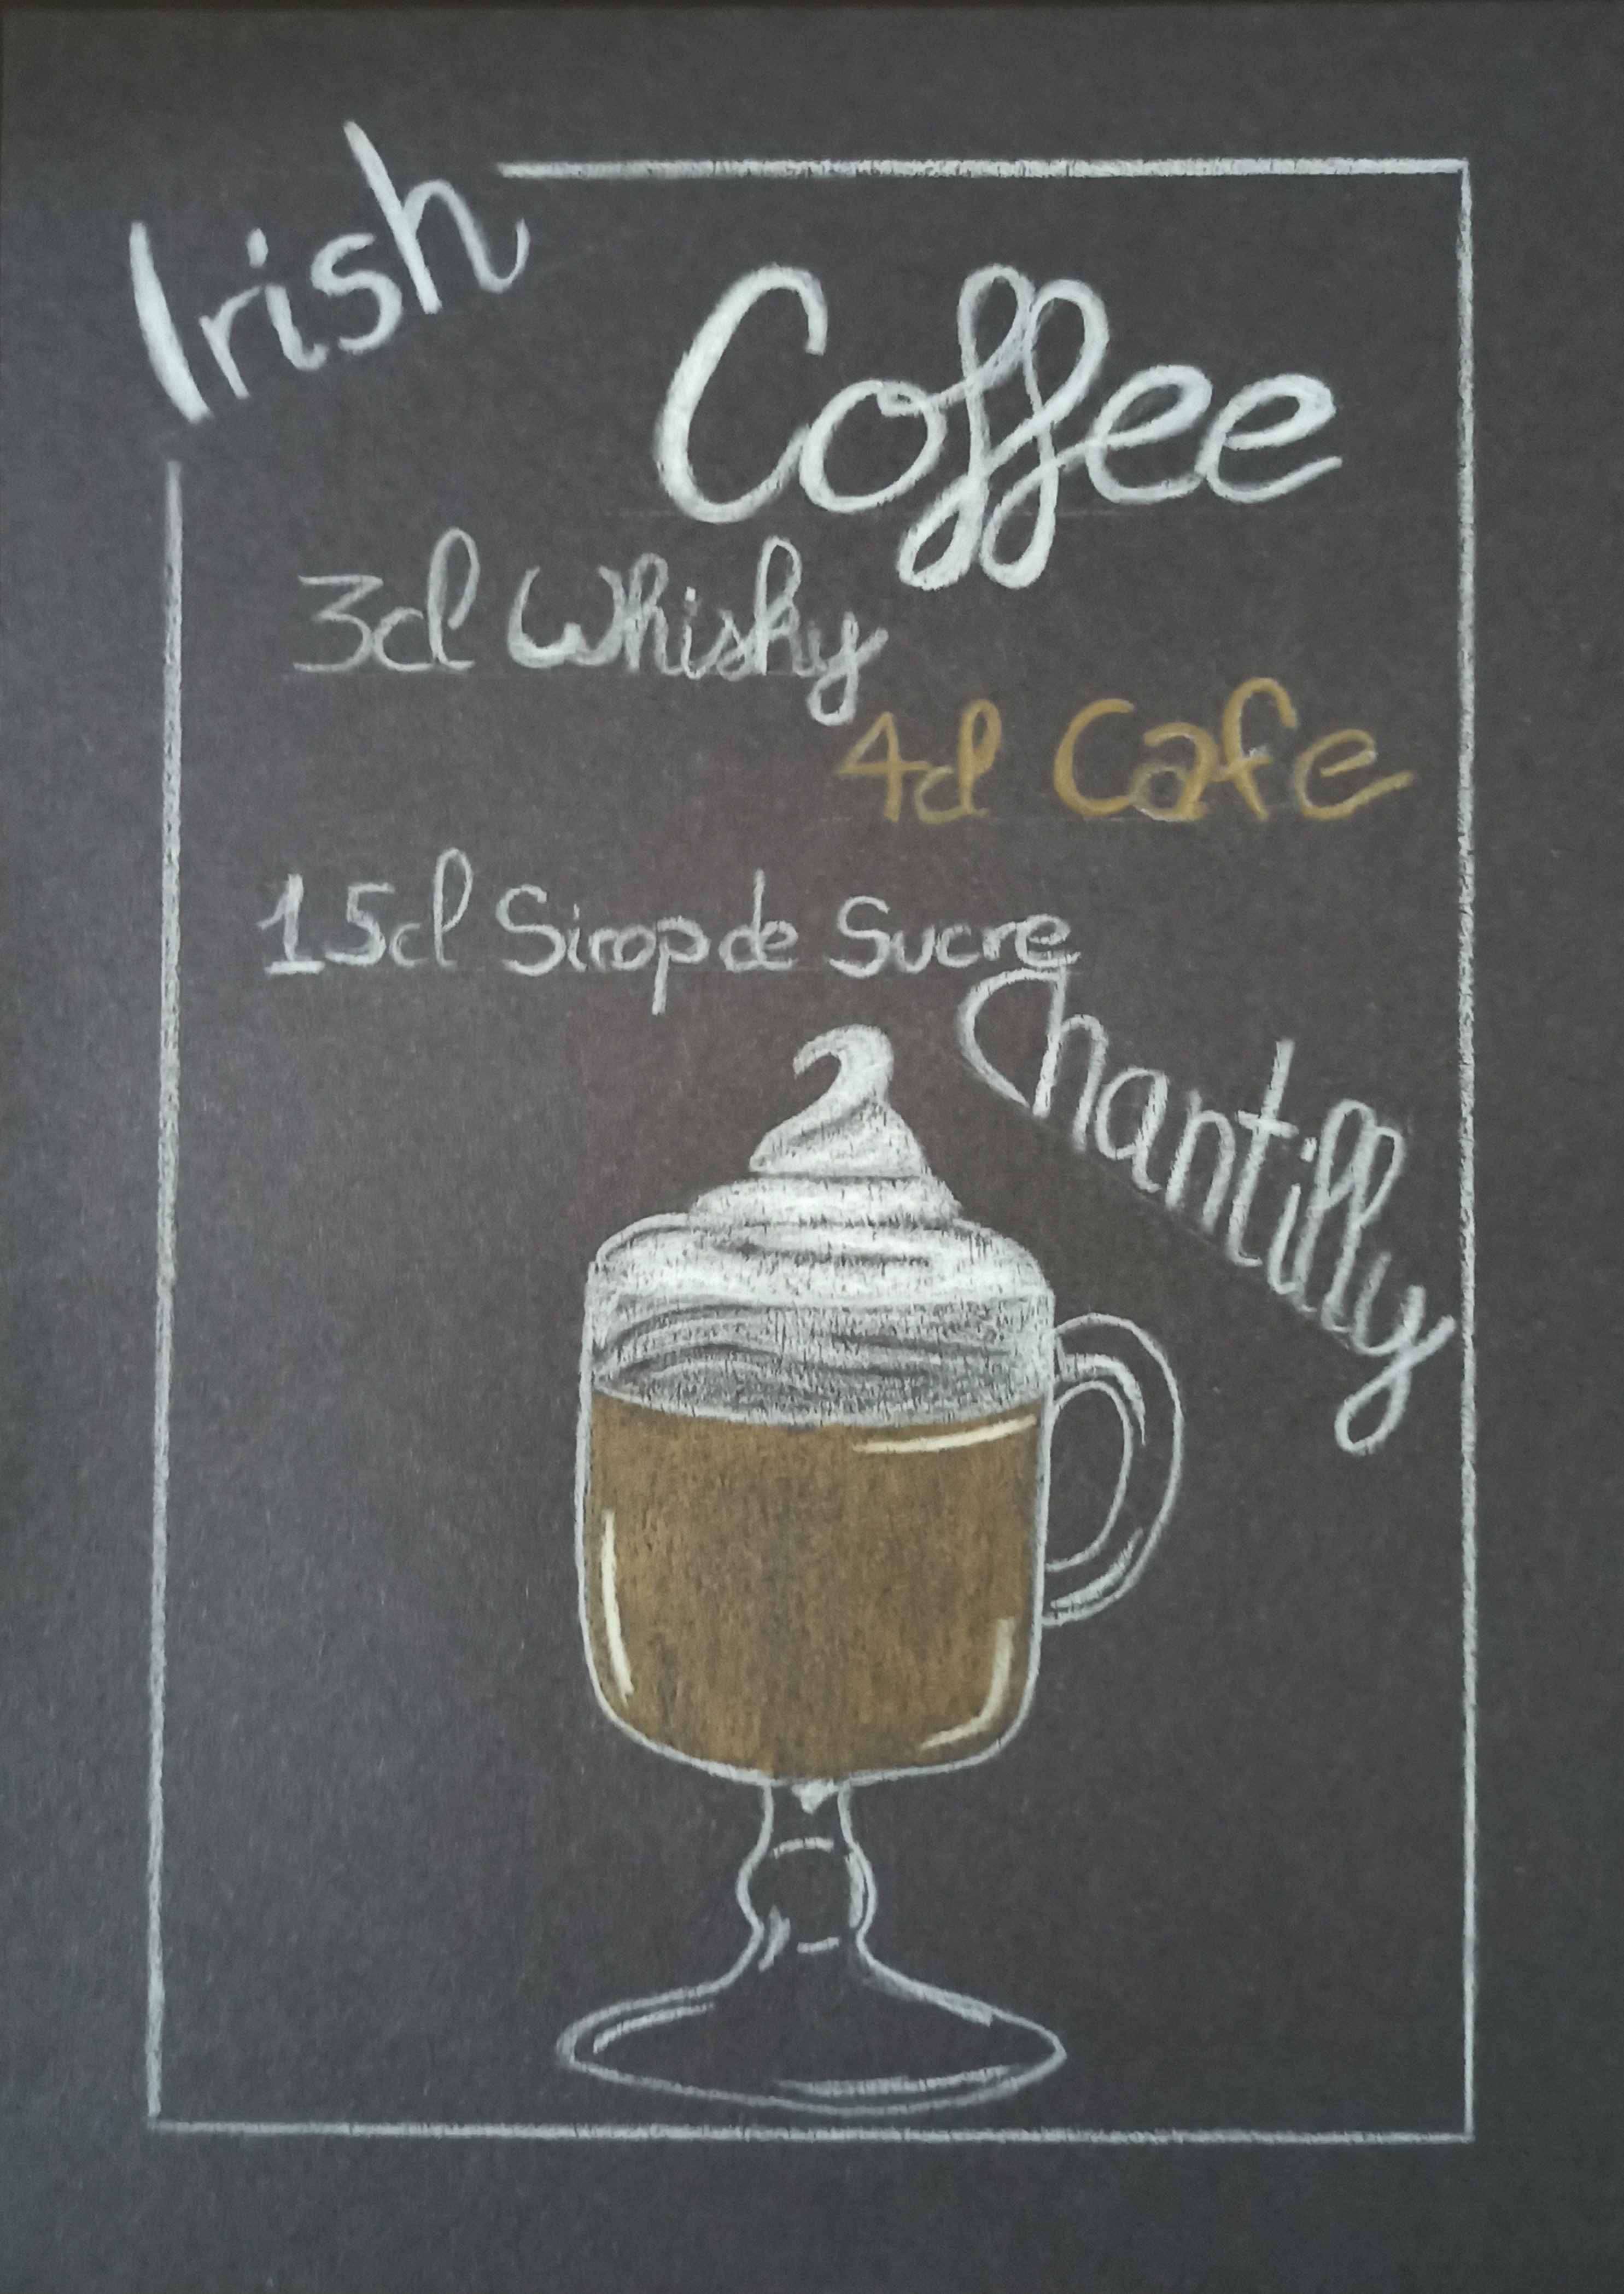 Irish
Coffee
3cl Whisky
4cl Cafe
15cl Sirop de Sucre
Chantilly